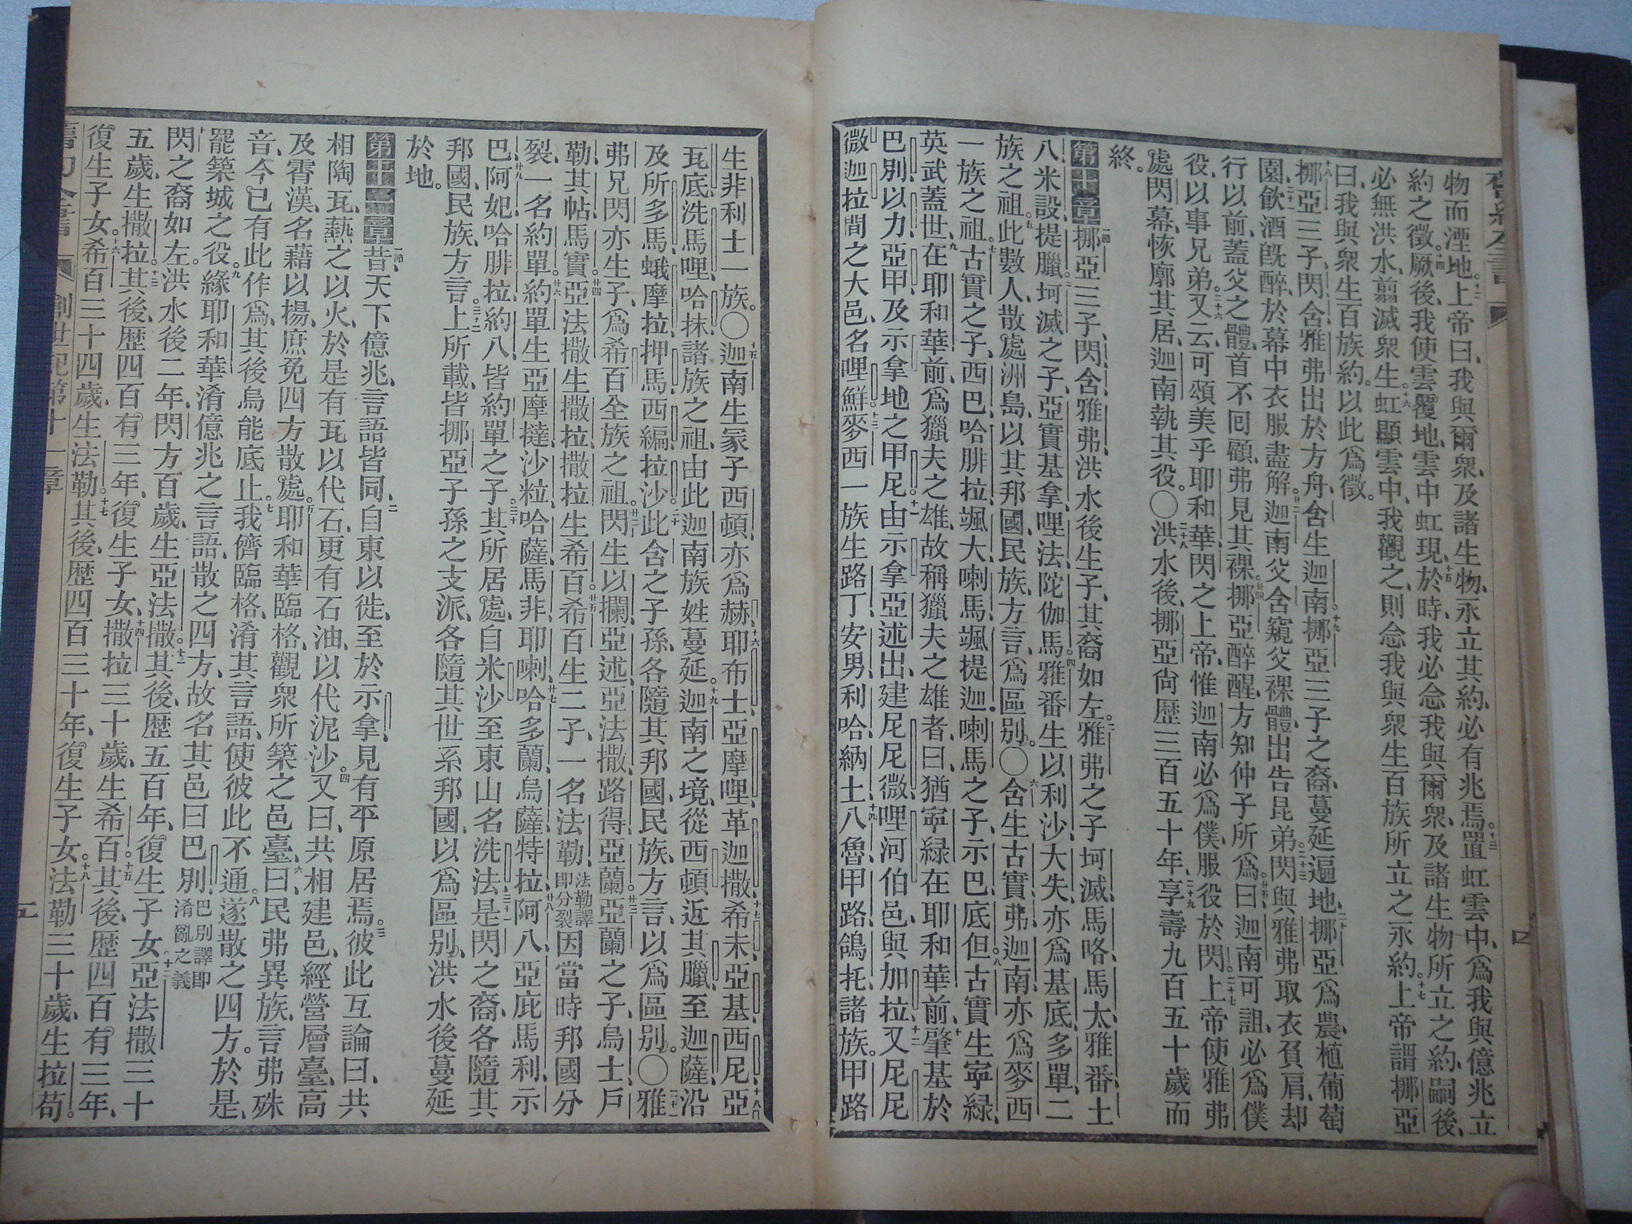 物而湮地。上帝曰、我與爾衆、及諸生物、永立其約、必有兆焉。置虹雲中、爲我與億兆立
約之徵。厥後我使雲覆地、雲中虹現、於時我必念我與爾衆、及諸生物所立之約、嗣後、
必無洪水、翦滅衆生。虹顯雲中、我觀之、則念我與衆生百族所立之永約。上帝謂挪亞
曰、我與衆生百族約、以此爲徵。
挪亞三子、閃含雅弗、出於方舟、含生迦南。挪亞三子之裔、蔓延遍地。挪亞爲農、植葡萄
園、飲酒旣醉、於幕中衣服盡解。迦南父含、窺父裸體、出告昆弟。閃與雅弗取衣負肩、却
行以前、蓋父之體、首不回顧、弗見其裸。挪亞醉醒、方知仲子所爲。曰、迦南可詛、必爲僕
役、以事兄弟。又云、可頌美乎、耶和華閃之上帝、惟迦南必爲僕、服役於閃。上帝使雅弗
處閃幕、恢廓其居、迦南執其役。○洪水後、挪亞尙歷三百五十年、享壽九百五十歲而
終。
第十章 挪亞三子、閃含雅弗、洪水後生子、其裔如左。雅弗之子、坷滅、馬咯、馬太、雅番、土
八、米設、提臘。坷滅之子、亞實基拿、哩法、陀伽馬。雅番生以利沙、大失、亦爲基底、多單二
族之祖。此數人散處洲島、以其邦國、民族、方言、爲區別。○含生古實、弗、迦南、亦爲麥西
一族之祖。古實之子、西巴、哈腓拉、颯大、喇馬、颯提迦、喇馬之子、示巴、底但、古實生寕綠、
英武蓋世。在耶和華前爲獵夫之雄、故稱獵夫之雄者、曰、猶寕綠在耶和華前。肇基於
巴別、以力、亞甲、及示拿地之甲尼。由示拿亞述出、建尼尼微、哩河伯邑、與加拉。又尼尼
微迦拉間之大邑、名哩鮮。麥西一族、生路丁、安男、利哈、納土八、魯甲路鴿托諸族。甲路
生非利士一族。○迦南生冢子西頓、亦爲赫、耶布士、亞摩哩、革迦撒、希未、亞基、西尼、亞
瓦底、洗馬哩、哈抹諸族之祖、由此迦南族姓蔓延。迦南之境、從西頓近其臘、至迦薩、沿
及所多馬、蛾摩拉、押馬、西編、拉沙。此含之子孫、各隨其邦國、民族、方言、以爲區別。○雅
弗兄閃、亦生子、爲希百全族之祖。閃生以攔、亞述、亞法撒、路得、亞蘭。亞蘭之子、烏士、戶
勒、其帖、馬實。亞法撒生撒拉、撒拉生希百。希百生二子、一名法勒、法勒譯即分裂因當時邦國分
裂、一名約單。約單生亞摩撻、沙粒、哈薩馬非、耶喇、哈多蘭、烏薩、特拉、阿八、亞庇馬利、示
巴、阿妃、哈腓拉、約八、皆約單之子。其所居處、自米沙至東山、名洗法。是閃之裔、各隨其
邦國、民族、方言。上所載、皆挪亞子孫之支派、各隨其世系邦國、以爲區別、洪水後蔓延
於地。
第十一章 昔天下億兆、言語皆同。自東以徙、至於示拿、見有平原居焉。彼此互論曰、共
相陶瓦、爇之以火、於是有瓦以代石、更有石油、以代泥沙。又曰、共相建邑、經營層臺、高
及霄漢、名藉以揚、庶免四方散處。耶和華臨格、觀衆所築之邑臺。曰、民弗異族、言弗殊
音、今已有此作爲、其後烏能底止。我儕臨格、淆其言語、使彼此不通。遂散之四方、於是
罷築城之役。緣耶和華淆億兆之言語、散之四方、故名其邑曰巴別、巴別譯即淆亂之義
閃之裔如左。洪水後二年、閃方百歲、生亞法撒。其後、歷五百年、復生子女。亞法撒三十
五歲、生撒拉。其後、歷四百有三年、復生子女。撒拉三十歲、生希百。其後、歷四百有三年、
復生子女。希百三十四歲、生法勒。其後、歷四百三十年、復生子女。法勒三十歲、生拉苟。
創世記第十一章
五